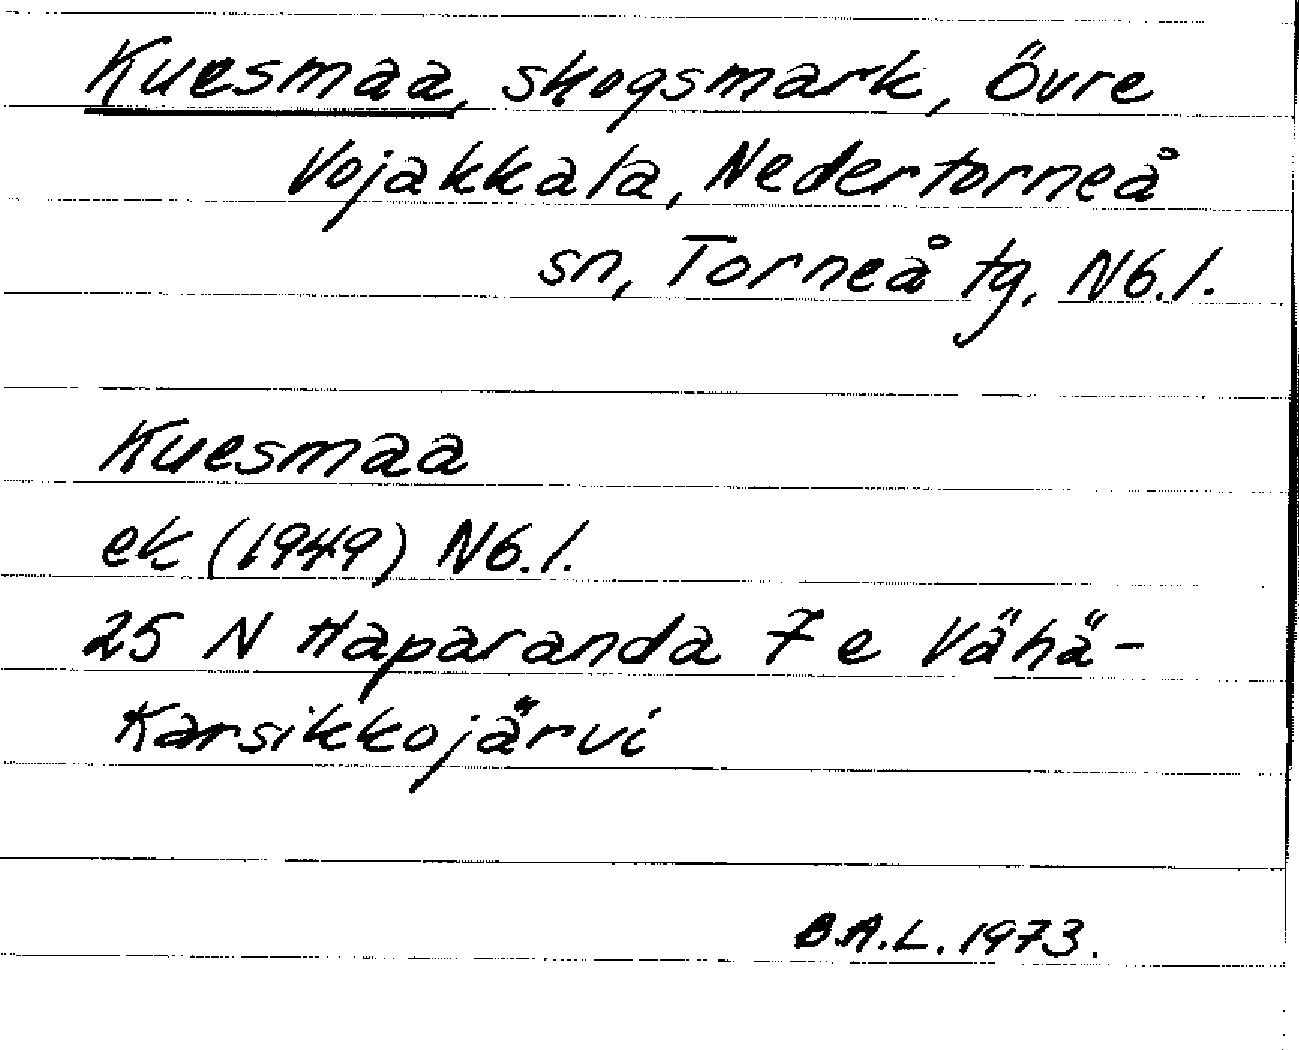 Kuesmaa, skogsmark, Övre
Vojakkala, Nedertorneå
sn, Torneå tg, Nb.l.
Kuesmaa
ek (1949) Nb.l.
25 N Haparanda 7e Vähä-
Karsikkojärvi
B.A.L. 1973.